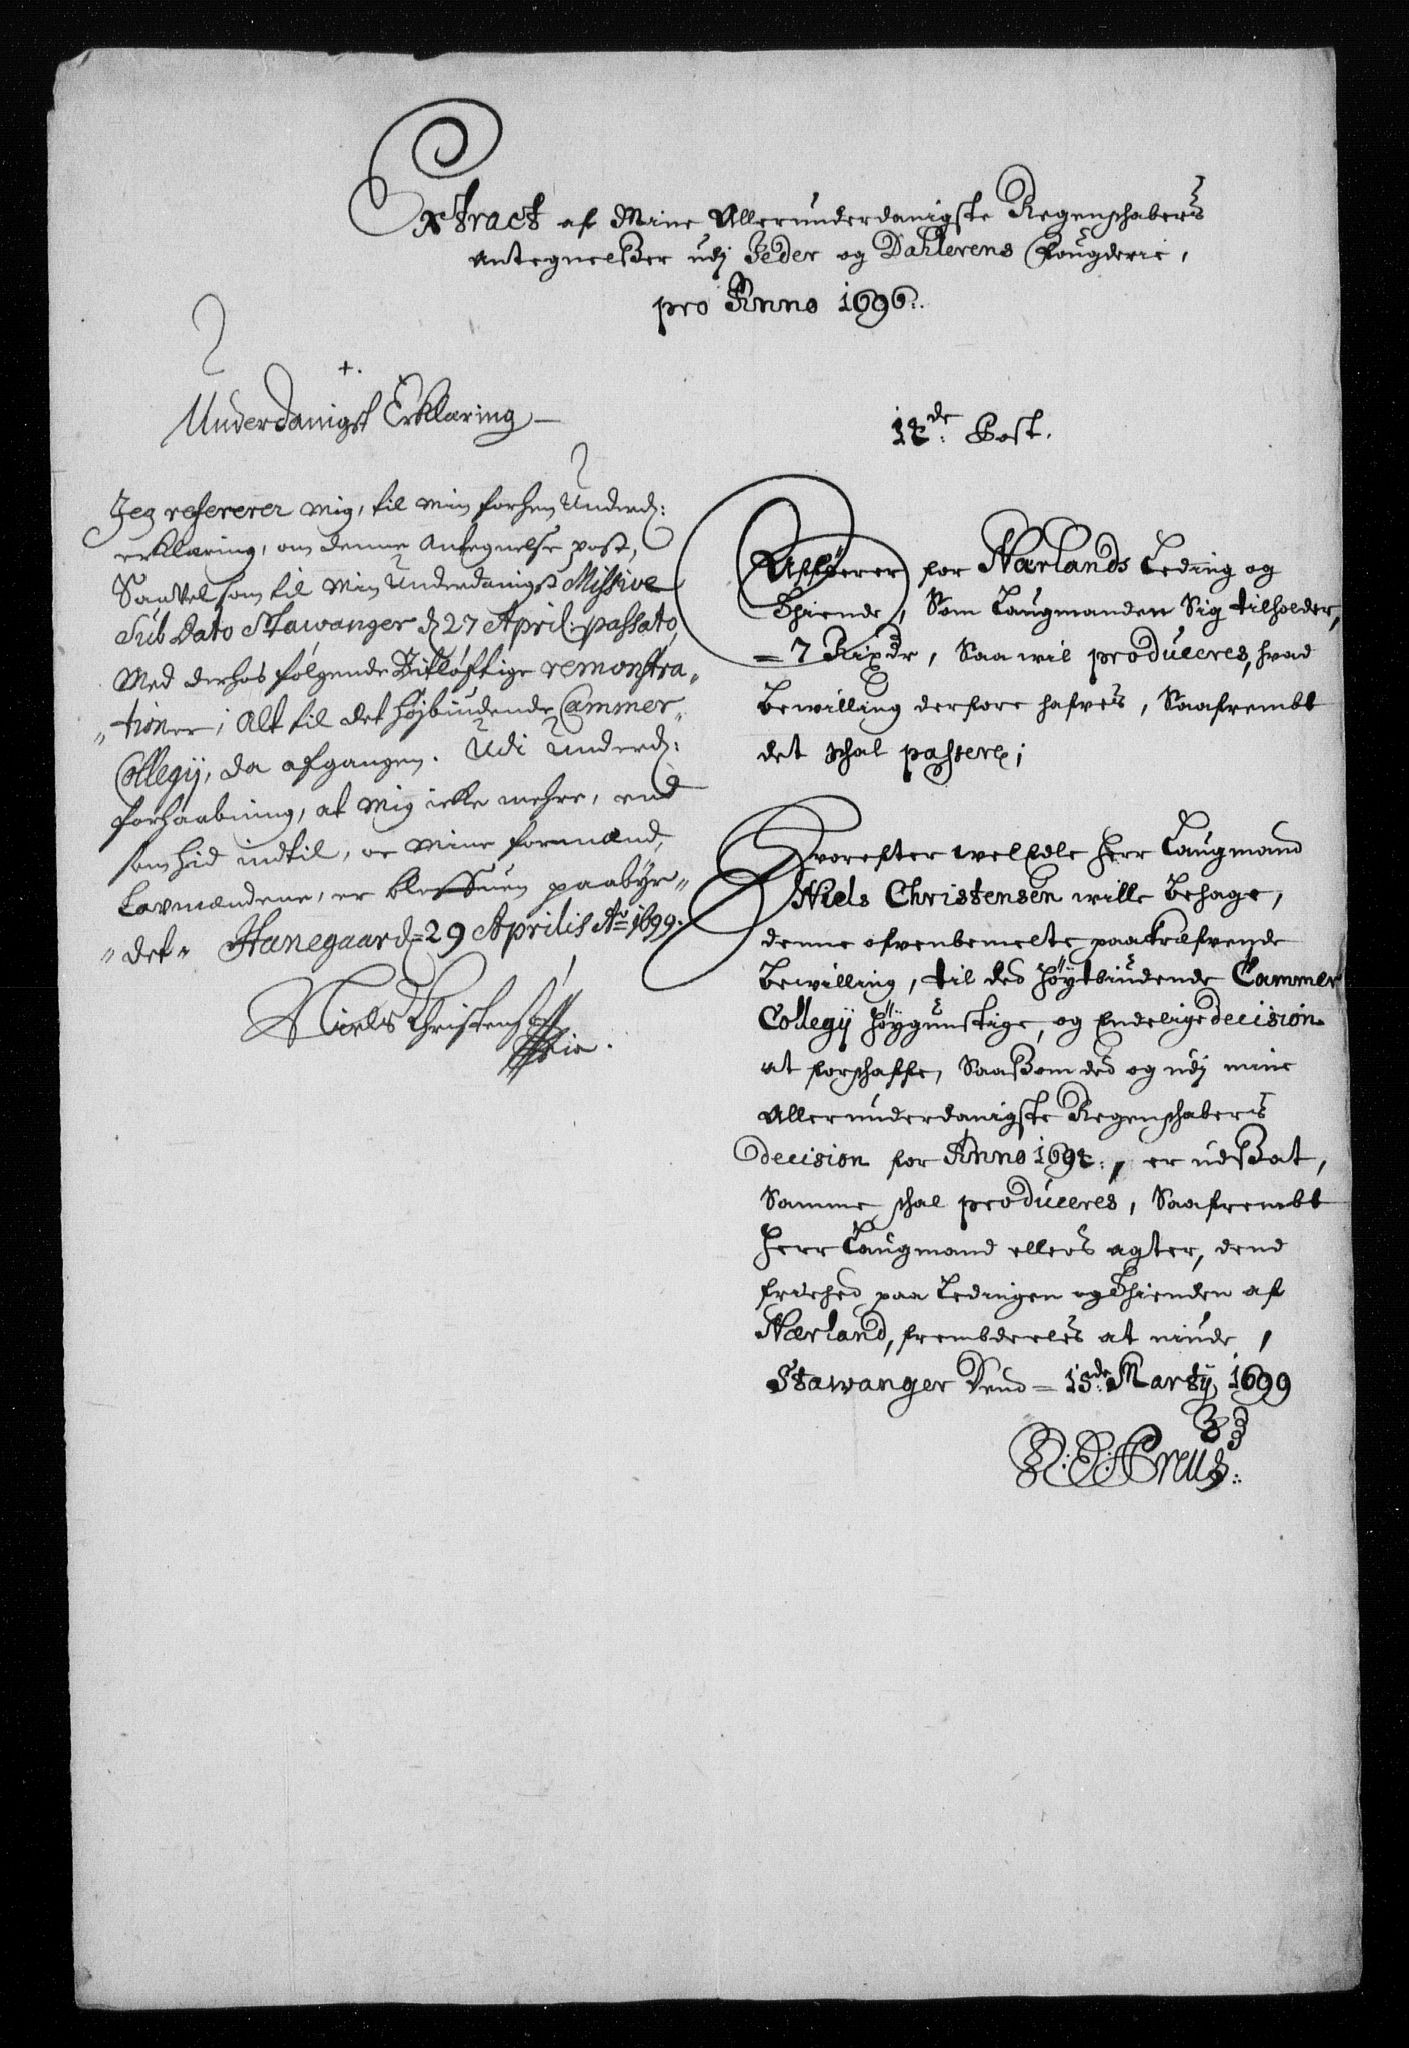 Extract af Mine Allerunderdanigste Regenschabers
Antegnelßer udj Jeder og Dahlerens fougderie,
pro Anno 1696.
+.
Underdanigst Erklæring
Jeg refererer mig, til min forhen Underd:
erklæring, om denne Antegnelse post,
Saavel som til min Underdanigst Missive
Sub Dato Stawanger d 27 April: passato,
Med derhos følgende Vitløftige remonstra„
„tioner, Alt til det Højbiudende Cammer„
Collegij, da afgangen. Udi Underd:
forhaabning, at mig icke mehre, end
som hid indtil, oc mine formænd,
Lavmændene, er blefven paabyr„
„det„ Hanegaard 29 Aprilis Ao 1699.
Niels Christensen
12de: Post.
Affkorer for Nærlands Leding og
Thiende, Som Laugmanden Sig tilholder,
= 7 Rixdr, Saa wil produceres, hvad
Bewilling derfore hafves, Saafrembt
det schal passere;
Hvorefter welEdle Herr Laugmand
Niels Christensen wille Behage,
denne ofvenbemelte paakrefvende
Bewilling, til ded Høytbiudende Cammer
Collegij Høygunstige, og Endelige decision
at forschaffe, Saasom ded og udj mine
Allerunderdanigste Regenschabers
decision for Anno 1692., er udßat,
Samme schal produceres, Saafrembt
Herr Laugmand ellers agter, dend
frieched paa Ledingen og Thienden af
Nærland, frembdeeles at niude,
Stawanger Dend = 15de: Martij, 1699